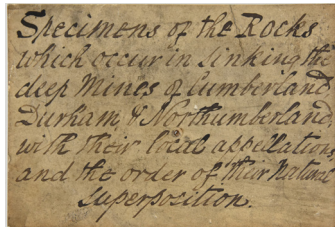 Specimens of the Rocks
which occur in sinking the
deep Mines of Cumberland
Durham & Northumberland,
with their local appellations,
and the order of their Natural
superposition.